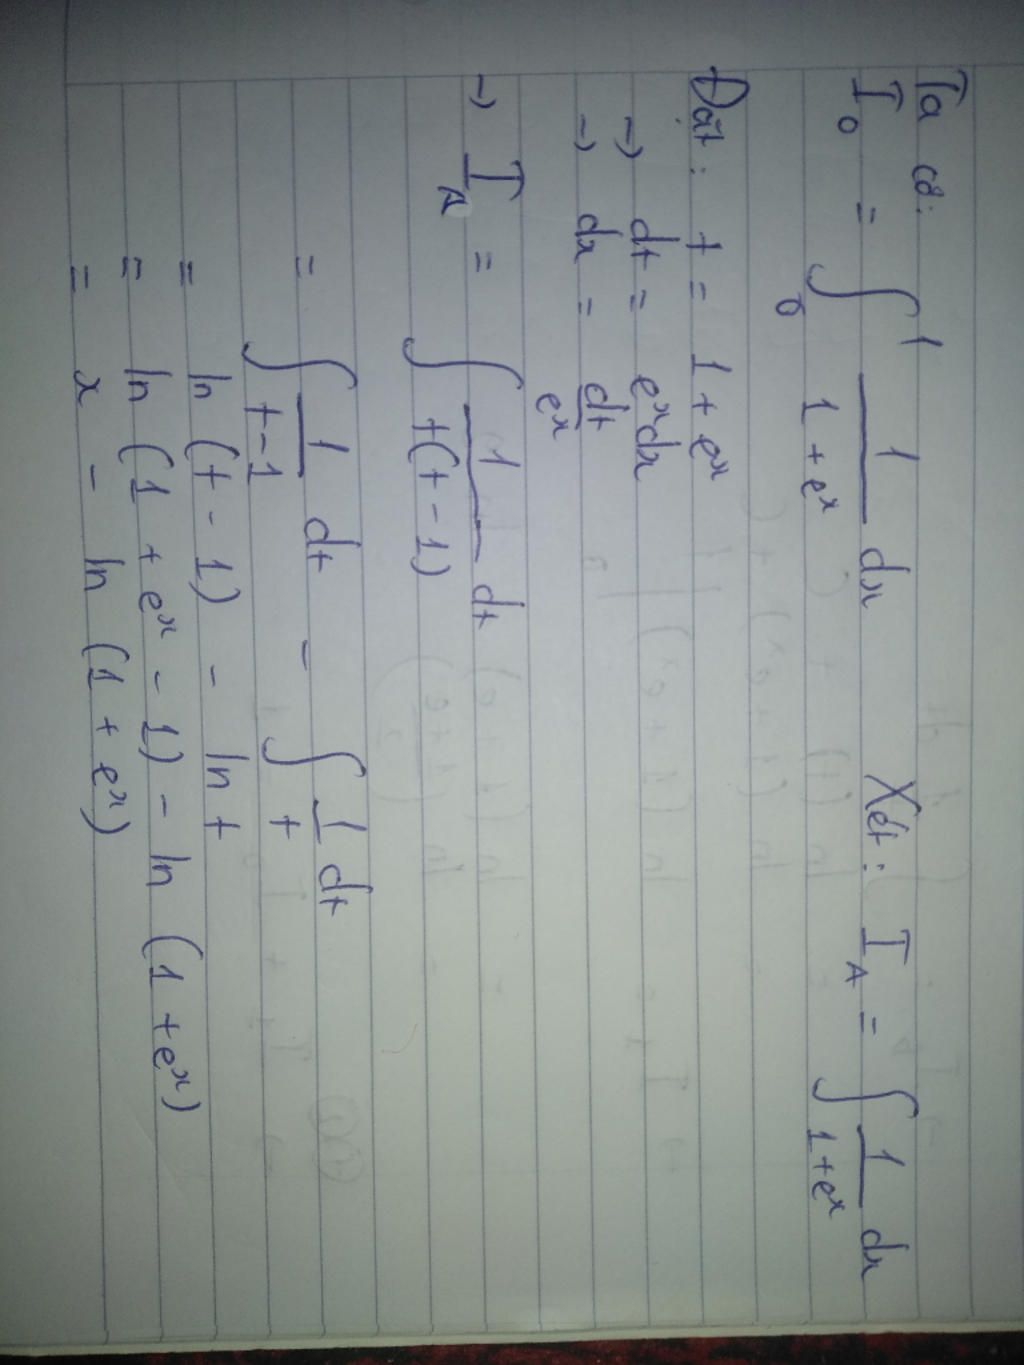 Ta có:
I₀ = ∫₀¹ 1/(1 + eˣ) dx Xét: I_A = ∫ 1/(1+eˣ) dx
Đặt: t = 1 + eˣ
→ dt = eˣdx
→ dx = dt/eˣ
→ I_A = ∫ 1/(t(t-1)) dt
= ∫ 1/(t-1) dt - ∫ 1/t dt
= ln (t - 1) - ln t
= ln (1 + eˣ - 1) - ln (1 + eˣ)
= x - ln (1 + eˣ)